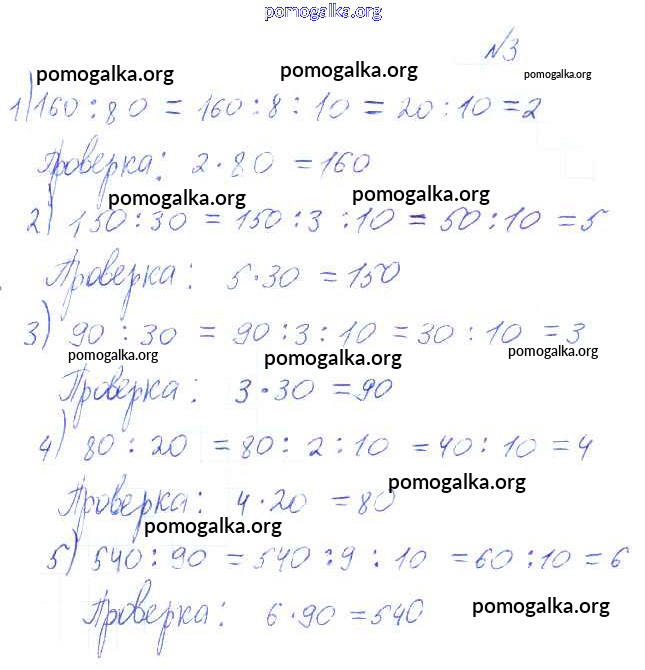 pomogalka.org
№3
pomogalka.org pomogalka.org pomogalka.org
1) 160 : 80 = 160 : 8 : 10 = 20 : 10 = 2
Проверка: 2 · 80 = 160
pomogalka.org pomogalka.org
2) 150 : 30 = 150 : 3 : 10 = 50 : 10 = 5
Проверка: 5 · 30 = 150
3) 90 : 30 = 90 : 3 : 10 = 30 : 10 = 3
pomogalka.org pomogalka.org pomogalka.org
Проверка: 3 · 30 = 90
4) 80 : 20 = 80 : 2 : 10 = 40 : 10 = 4
pomogalka.org
Проверка: 4 · 20 = 80
pomogalka.org
5) 540 : 90 = 540 : 9 : 10 = 60 : 10 = 6
Проверка: 6 · 90 = 540
pomogalka.org